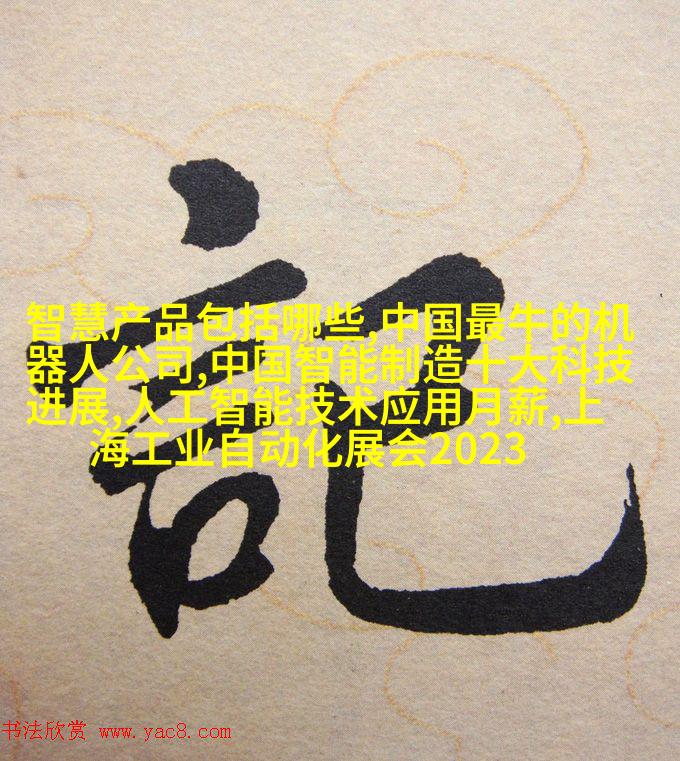 記
智慧产品包括哪些,中国最牛的机
器人公司,中国智能制造十大科技
进展,人工智能技术应用月薪,上
海工业自动化展会2023
书法欣赏 www.yac8.com